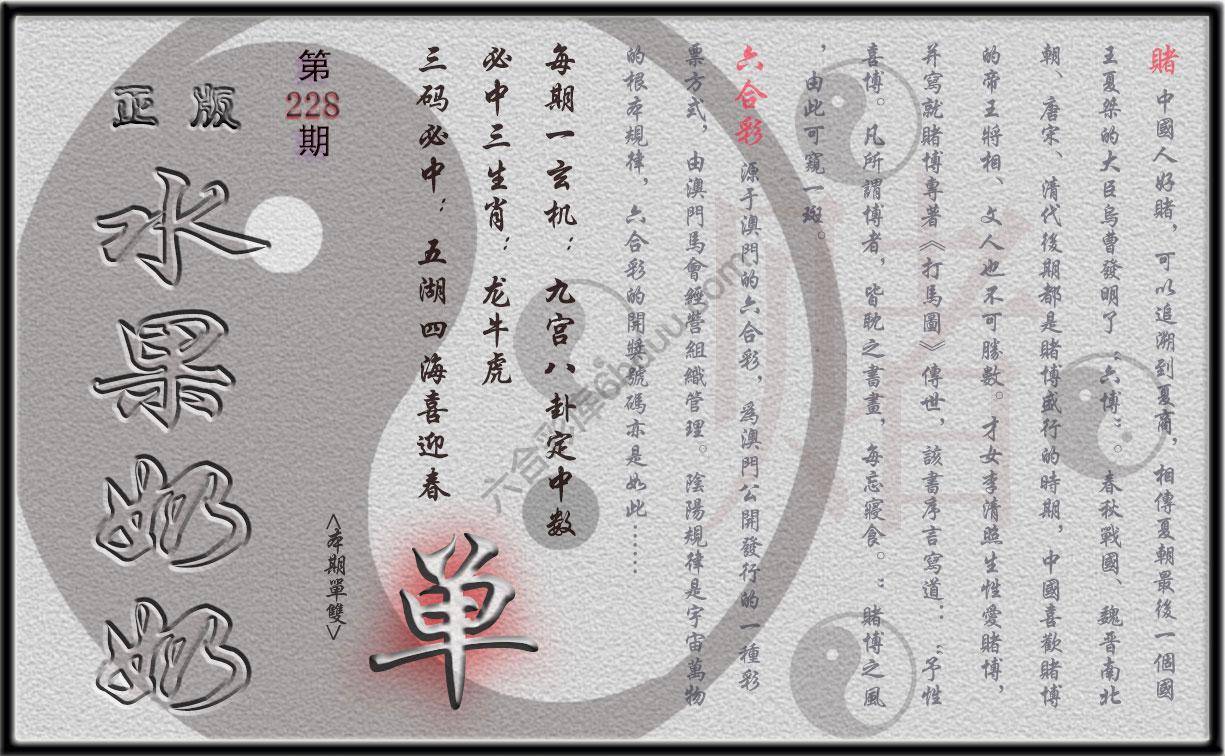 賭 中國人好賭，可以追溯到夏商，相傳夏朝最後一個國
王夏桀的大臣烏曹發明了“六博”。春秋戰國、魏晋南北
朝、唐宋、清代後期都是賭博盛行的時期，中國喜歡賭博
的帝王將相、文人也不可勝數。才女李清照生性愛賭博，
并寫就賭博專著《打馬圖》傳世，該書序言寫道：“予性
喜博。凡所謂博者，皆耽之晝晝，每忘寢食。：賭博之風
，由此可窺一斑。
六合彩 源于澳門的六合彩，為澳門公開發行的一種彩
票方式，由澳門馬會經營組織管理。陰陽規律是宇宙萬物
的根本規律，六合彩的開獎號碼亦是如此……
每期一玄机：九宫八卦定中数
必中三生肖：龙牛虎
三码必中：五湖四海喜迎春
单
<本期單雙>
第
228
期
正版
水果奶奶
賭
六合彩库6hduu.com